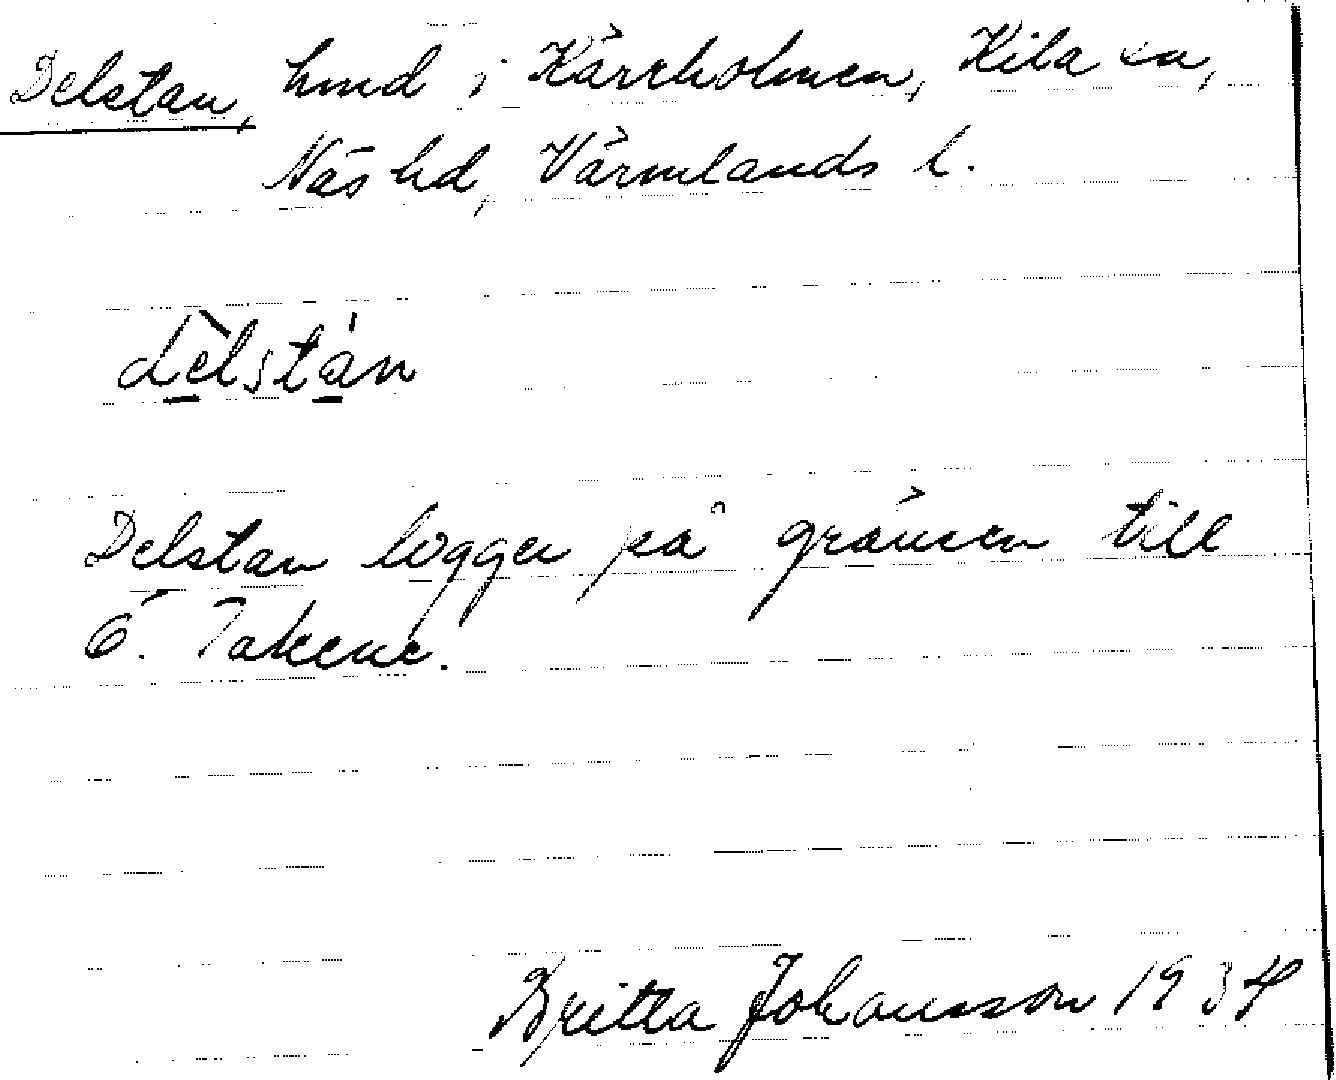 Delstan, hmd i Kärrholmen, Kila sn,
Näs hd, Värmlands l.
dèlstán
Delstan ligger på gränsen till
Ö. Takene.
Britta Johansson 1934